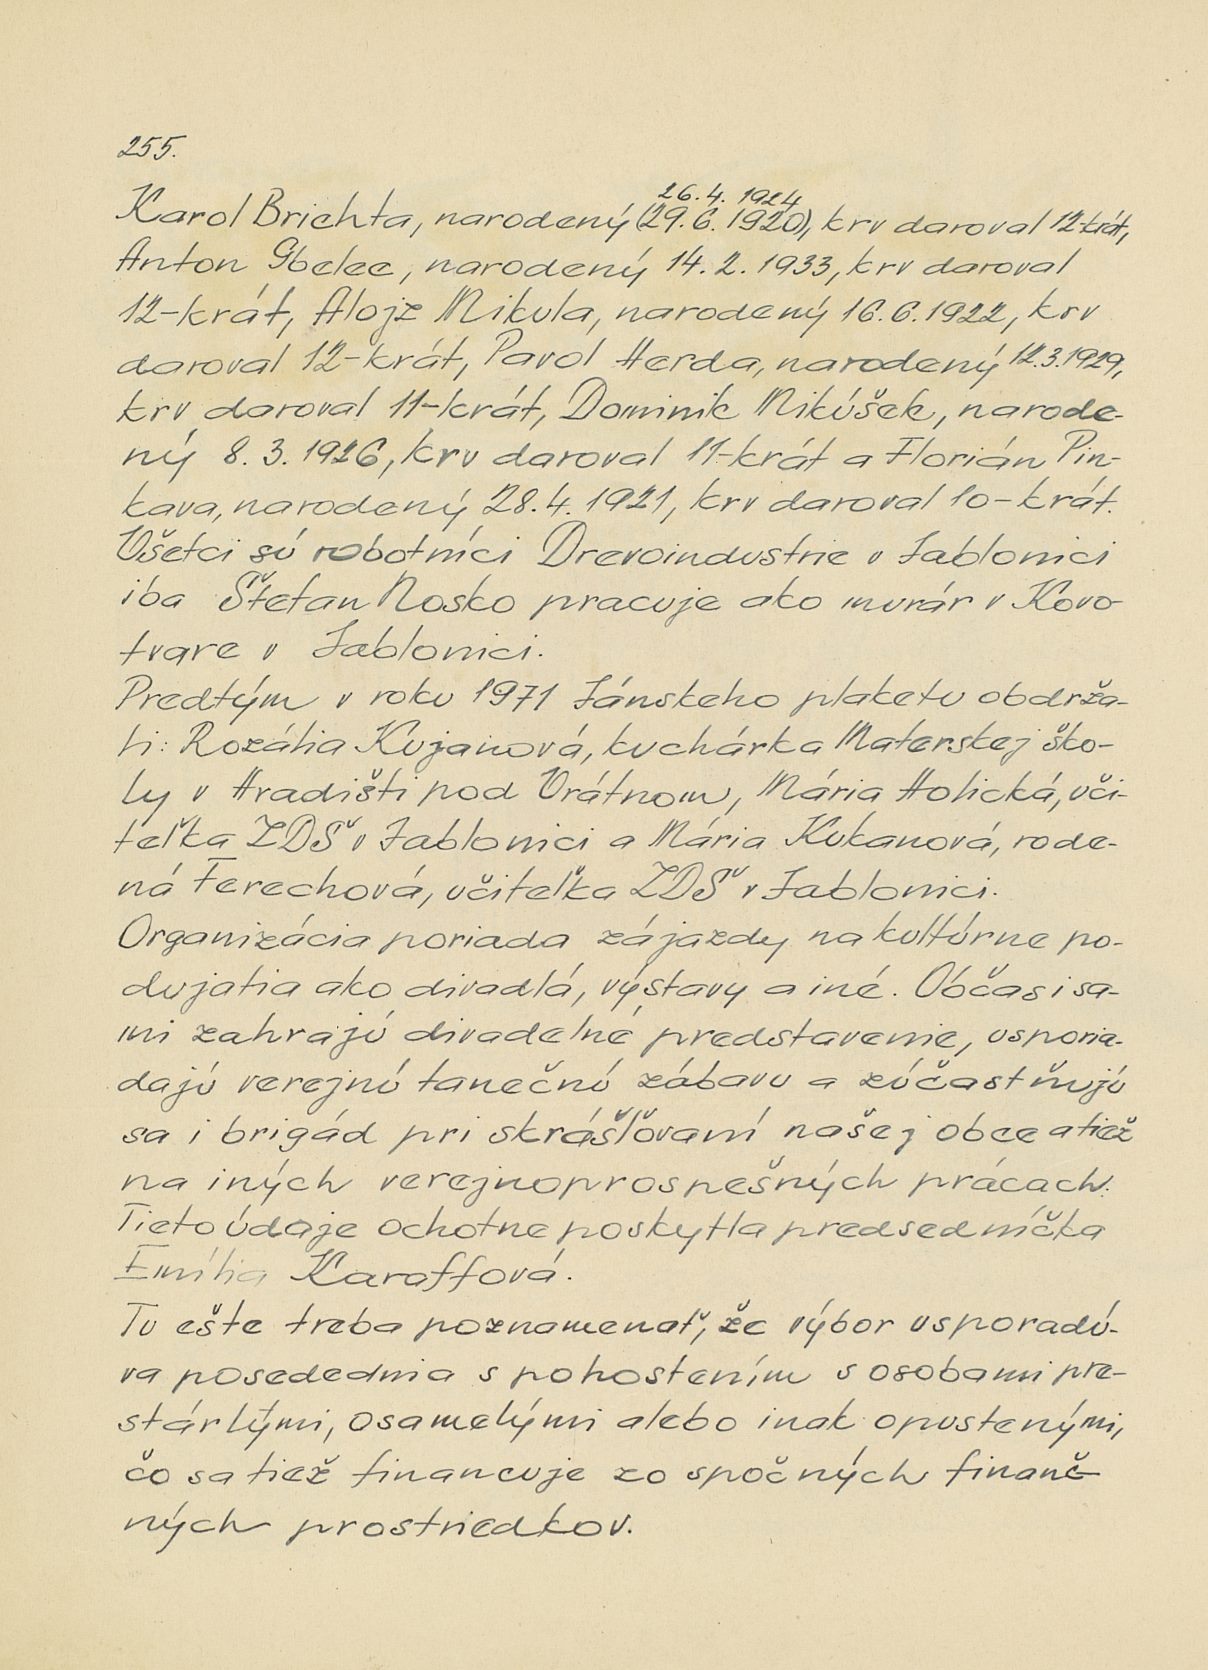 255.
26. 4. 1924
Karol Brichta, narodený (29. 6. 1920), krv daroval 12-krát,
Anton Gbelec, narodený 14. 2. 1933, krv daroval
12-krát, Alojz Mikula, narodený 16. 6. 1922, krv
daroval 12-krát, Pavol Herda, narodený 12. 3. 1929,
krv daroval 11-krát, Dominik Mikúšek, narode-
ný 8. 3. 1926, krv daroval 11-krát a Florián Pin-
kava, narodený 28. 4. 1921, krv daroval 10-krát.
Všetci sú robotníci Drevoindustrie v Jablonici
iba Štefan Nosko pracuje ako murár v Kovo-
tvare v Jablonici.
Predtým v roku 1971 Jánskeho plaketu obdrža-
li: Rozália Kujanová, kuchárka Materskej ško-
ly v Hradišti pod Vrátnom, Mária Holická, uči-
teľka ZDŠ v Jablonici a Mária Kukanová, rode-
ná Ferechová, učiteľka ZDŠ v Jablonici.
Organizácia poriada zájazdy na kultúrne po-
dujatia ako divadlá, výstavy a iné. Občas i sa-
mi zahrajú divadelné predstavenie, usporia-
dajú verejnú tanečnú zábavu a zúčastňujú
sa i brigád pri skrášľovaní našej obce a tiež
na iných verejnoprospešných prácach.
Tieto údaje ochotne poskytla predsedníčka
Emília Karaffová.
Tu ešte treba poznamenať, že výbor usporadú-
va posedednia s pohostením s osobami pre-
stárlými, osamelými alebo inak opustenými,
čo sa tiež financuje zo spočných finanč-
ných prostriedkov.